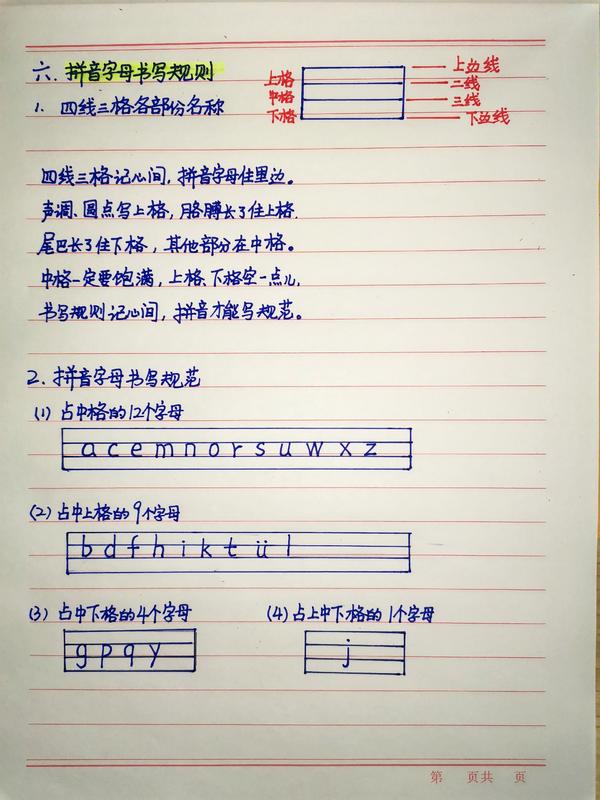 六.拼音字母书写规则
1. 四线三格各部份名称
上格
中格
下格
上边线
二线
三线
下边线
四线三格记心间,拼音字母住里边。
声调、圆点写上格,胳膊长了住上格.
尾巴长了住下格,其他部分在中格。
中格一定要饱满,上格、下格空一点儿,
书写规则记心间,拼音才能写规范。
2.拼音字母书写规范
(1) 占中格的12个字母
a c e m n o r s u w x z
(2) 占中上格的9个字母
b d f h i k t ü l
(3) 占中下格的4个字母
g p q y
(4) 占上中下格的1个字母
j
第 页共 页